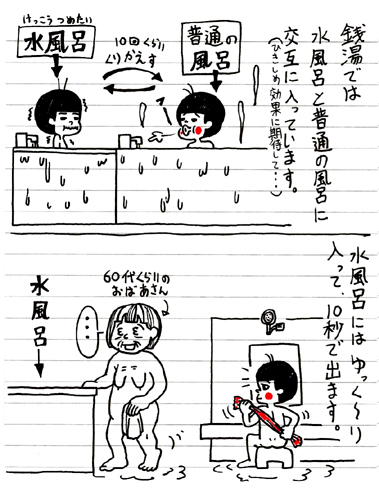 銭湯では
水風呂と普通の風呂に
交互に入っています。
(ひきしめ効果に期待して・・・)
普通の
風呂
10回くらい
くりかえす
けっこうつめたい
水風呂
水風呂にはゆっく〜り
入って、10秒で出ます。
60代くらいの
おばあさん
・・・
水風呂